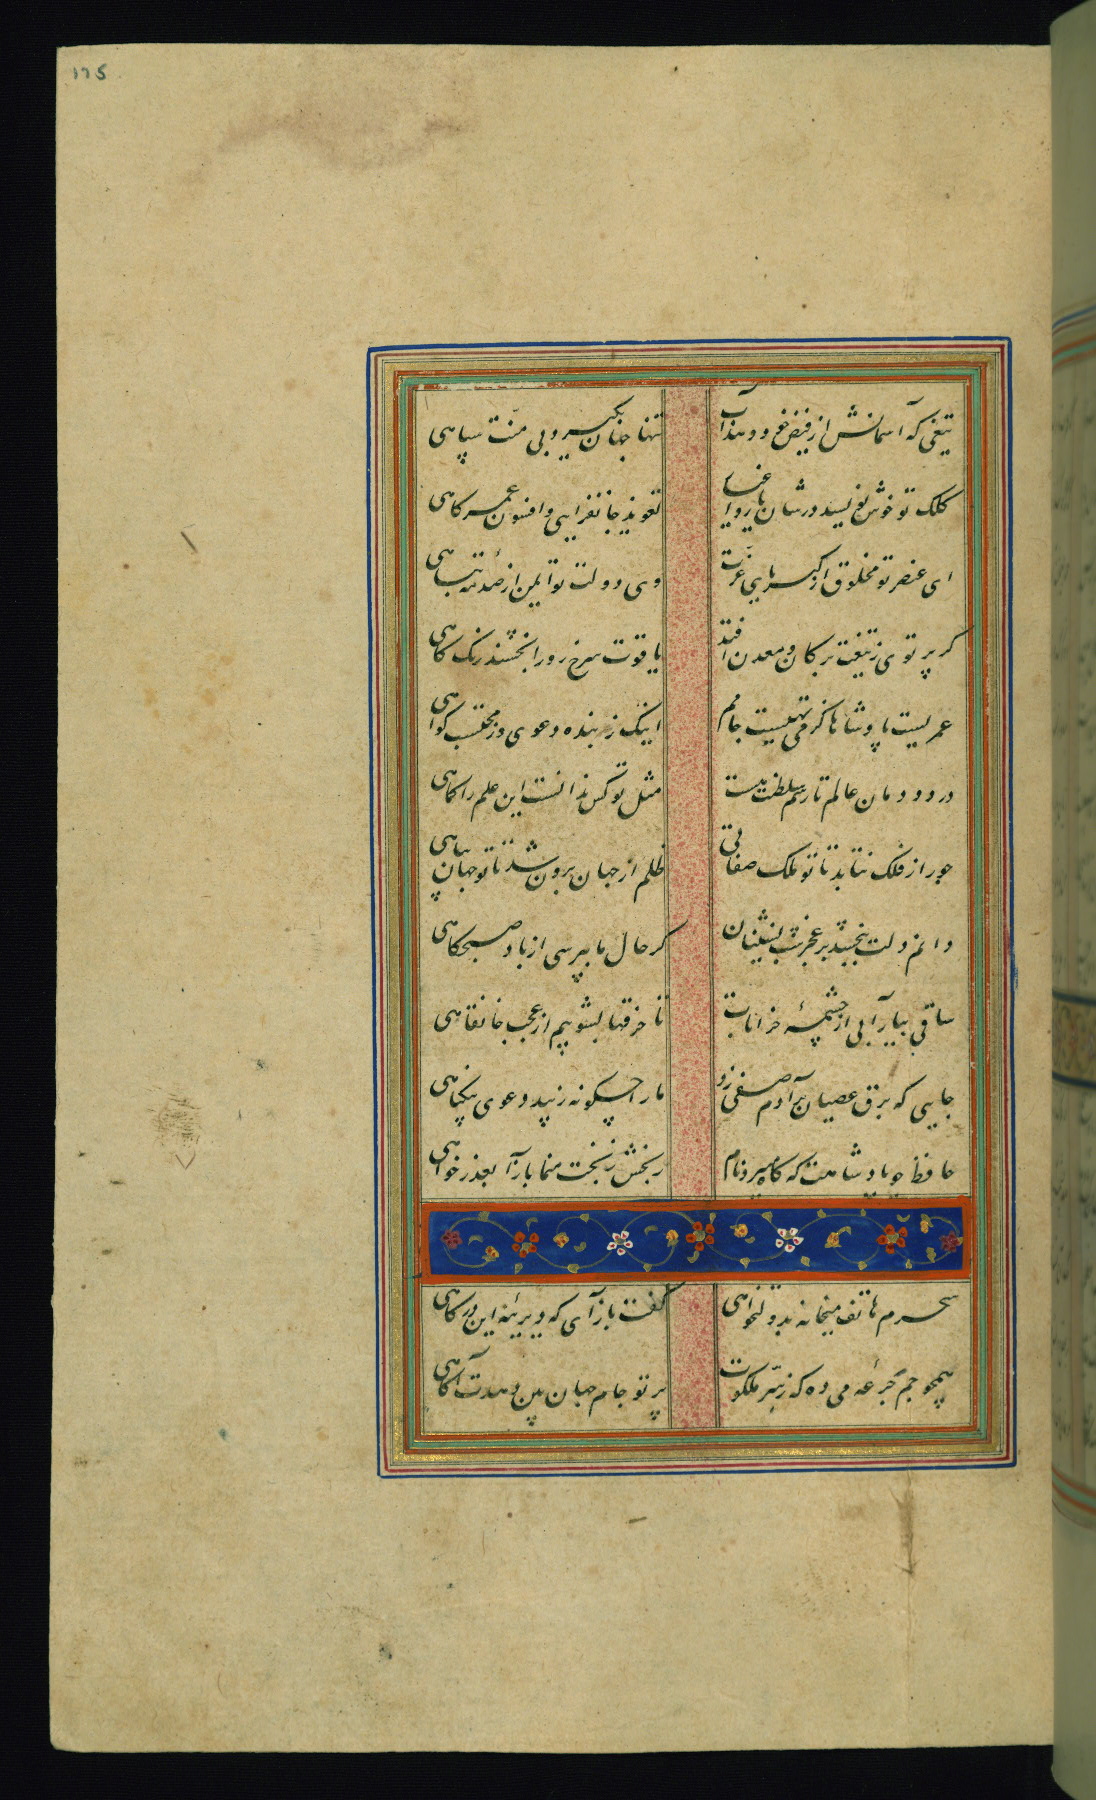 ۱۲۵
تیغی که آسمانش از فیض خود دهد آب تنها جهان بگیرد بی منّت سپاهی
کلک تو خوش نویسد در شان یار و اغیار تعویذ جانفزایی و افسون عمر کاهی
ای عنصر تو مخلوق از کبریای عزّت وی دولت تو ایمن از صدمهٔ تباهی
کر پرتوی ز تیغت بر کان و معدن افتد یاقوت سرخ رو را بخشند رنک کاهی
عمریست پادشاها کز می تهیست جامم اینک ز بنده دعوی وز محتسب کواهی
در دودمان عالم تا رسم سلطنت هست مثل تو کس ندانست این علم را کماهی
جور از فلک نتابد تا تو ملک صفاتی ظلم از جهان برون شد تا تو جهان پناهی
دانم دلت ببخشد بر عجز شب نشینان کر حال ما بپرسی از باد صبحکاهی
ساقی بیار آبی از چشمهٔ خرابات تا خرقها بشوییم از عجب خانقاهی
جایی که برق عصیان بر آدم صفی زد ما را چکونه زیبد دعوی بیکناهی
حافظ چو پادشاهت که کاه میبرد نام رنجش ز بخت منما بازآ بعذرخواهی
سحرم هاتف میخانه بدولتخواهی کفت بازآی که دیرینهٔ این درکاهی
همچو جم جرعهٔ می ده که ز سرّ ملکوت پرتو جام جهان بین دهدت آکاهی